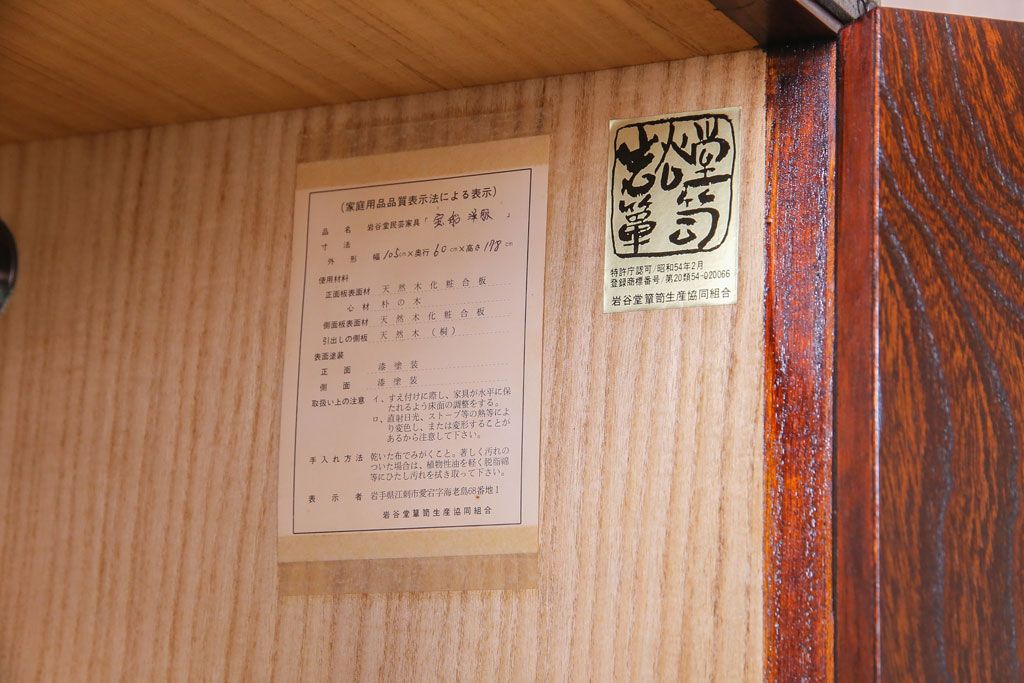 （家庭用品品質表示法による表示）
品名 岩谷堂民芸家具「宝船 洋服」
寸法
外形 幅105cm×奥行60cm×高さ198cm
使用材料
正面板表面材 天然木化粧合板
心材 朴の木
側面板表面材 天然木化粧合板
引出しの側板 天然木（桐）
表面塗装
正面 漆塗装
側面 漆塗装
取扱い上の注意 イ、すえ付けに際し、家具が水平に保
たれるよう床面の調整をする。
ロ、直射日光、ストーブ等の熱等によ
り変色し、または変形することが
あるから注意して下さい。
手入れ方法 乾いた布でみがくこと。著しく汚れの
ついた場合は、植物性油を軽く脱脂綿
等にひたし汚れを拭き取って下さい。
表示者 岩手県江刺市愛宕字海老島68番地1
岩谷堂簞笥生産協同組合
岩谷堂
簞笥
特許庁認可/昭和54年2月
登録商標番号/第20類54-020066
岩谷堂簞笥生産協同組合